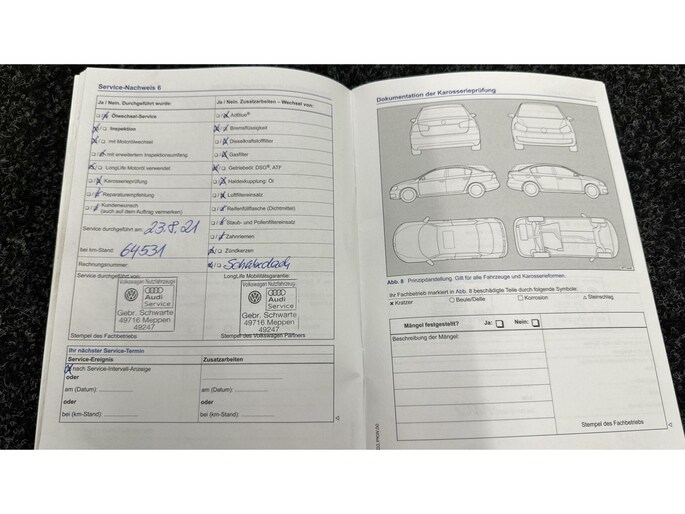 Service-Nachweis 6
Ja / Nein. Durchgeführt wurde:
Ölwechsel-Service
Inspektion
mit Motorölwechsel
mit erweitertem Inspektionsumfang
LongLife Motoröl verwendet
Karosserieprüfung
Reparaturempfehlung
Kundenwunsch
(auch auf dem Auftrag vermerken)
Service durchgeführt am: 23.8.21
bei km-Stand: 64531
Rechnungsnummer:
Service durchgeführt von:
Volkswagen Nutzfahrzeug
Audi
Service
Gebr. Schwarte
49716 Meppen
49247
Stempel des Fachbetriebs
Ja / Nein. Zusatzarbeiten – Wechsel von:
AdBlue®
Bremsflüssigkeit
Dieselkraftstofffilter
Gasfilter
Getriebeöl: DSG®, ATF
Haldexkupplung: Öl
Luftfiltereinsatz
Reifenfüllflasche (Dichtmittel)
Staub- und Pollenfiltereinsatz
Zahnriemen
Zündkerzen
LongLife Mobilitätsgarantie:
Volkswagen Nutzfahrzeug
Audi
Service
Gebr. Schwarte
49716 Meppen
49247
Stempel des Volkswagen Partners
Ihr nächster Service-Termin
Service-Ereignis
nach Service-Intervall-Anzeige
oder
am (Datum):
oder
bei (km-Stand):
Zusatzarbeiten
oder
am (Datum):
oder
bei (km-Stand):
Dokumentation der Karosserieprüfung
Abb. 8 Prinzipdarstellung. Gilt für alle Fahrzeuge und Karosserieformen.
Ihr Fachbetrieb markiert in Abb. 8 beschädigte Teile durch folgende Symbole:
Kratzer
Beule/Delle
Korrosion
Steinschlag
Mängel festgestellt? Ja: Nein:
Beschreibung der Mängel:
Stempel des Fachbetriebs